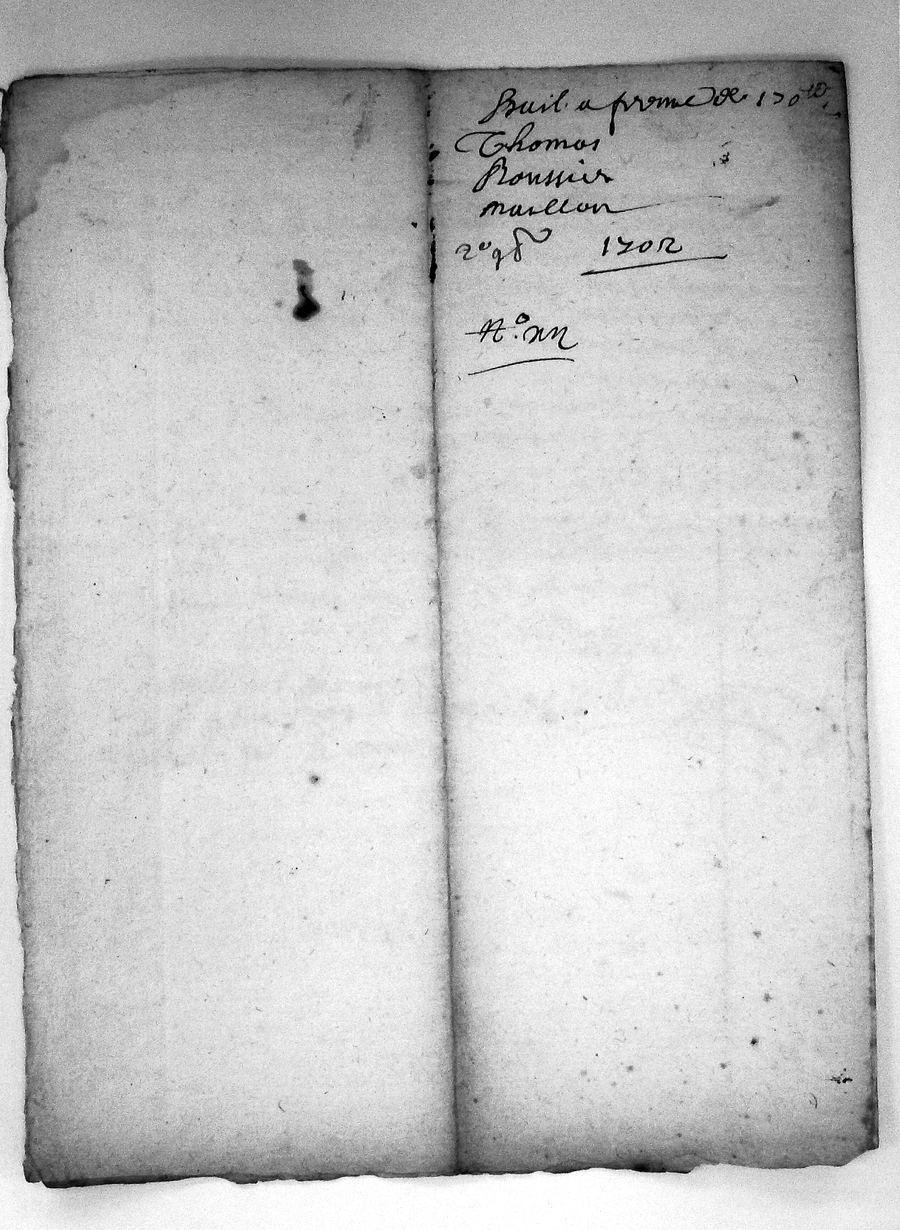 Bail a ferme de 170ᵗᵗ
Thomas
Roussier
maillon
2º 1702
Nº xii